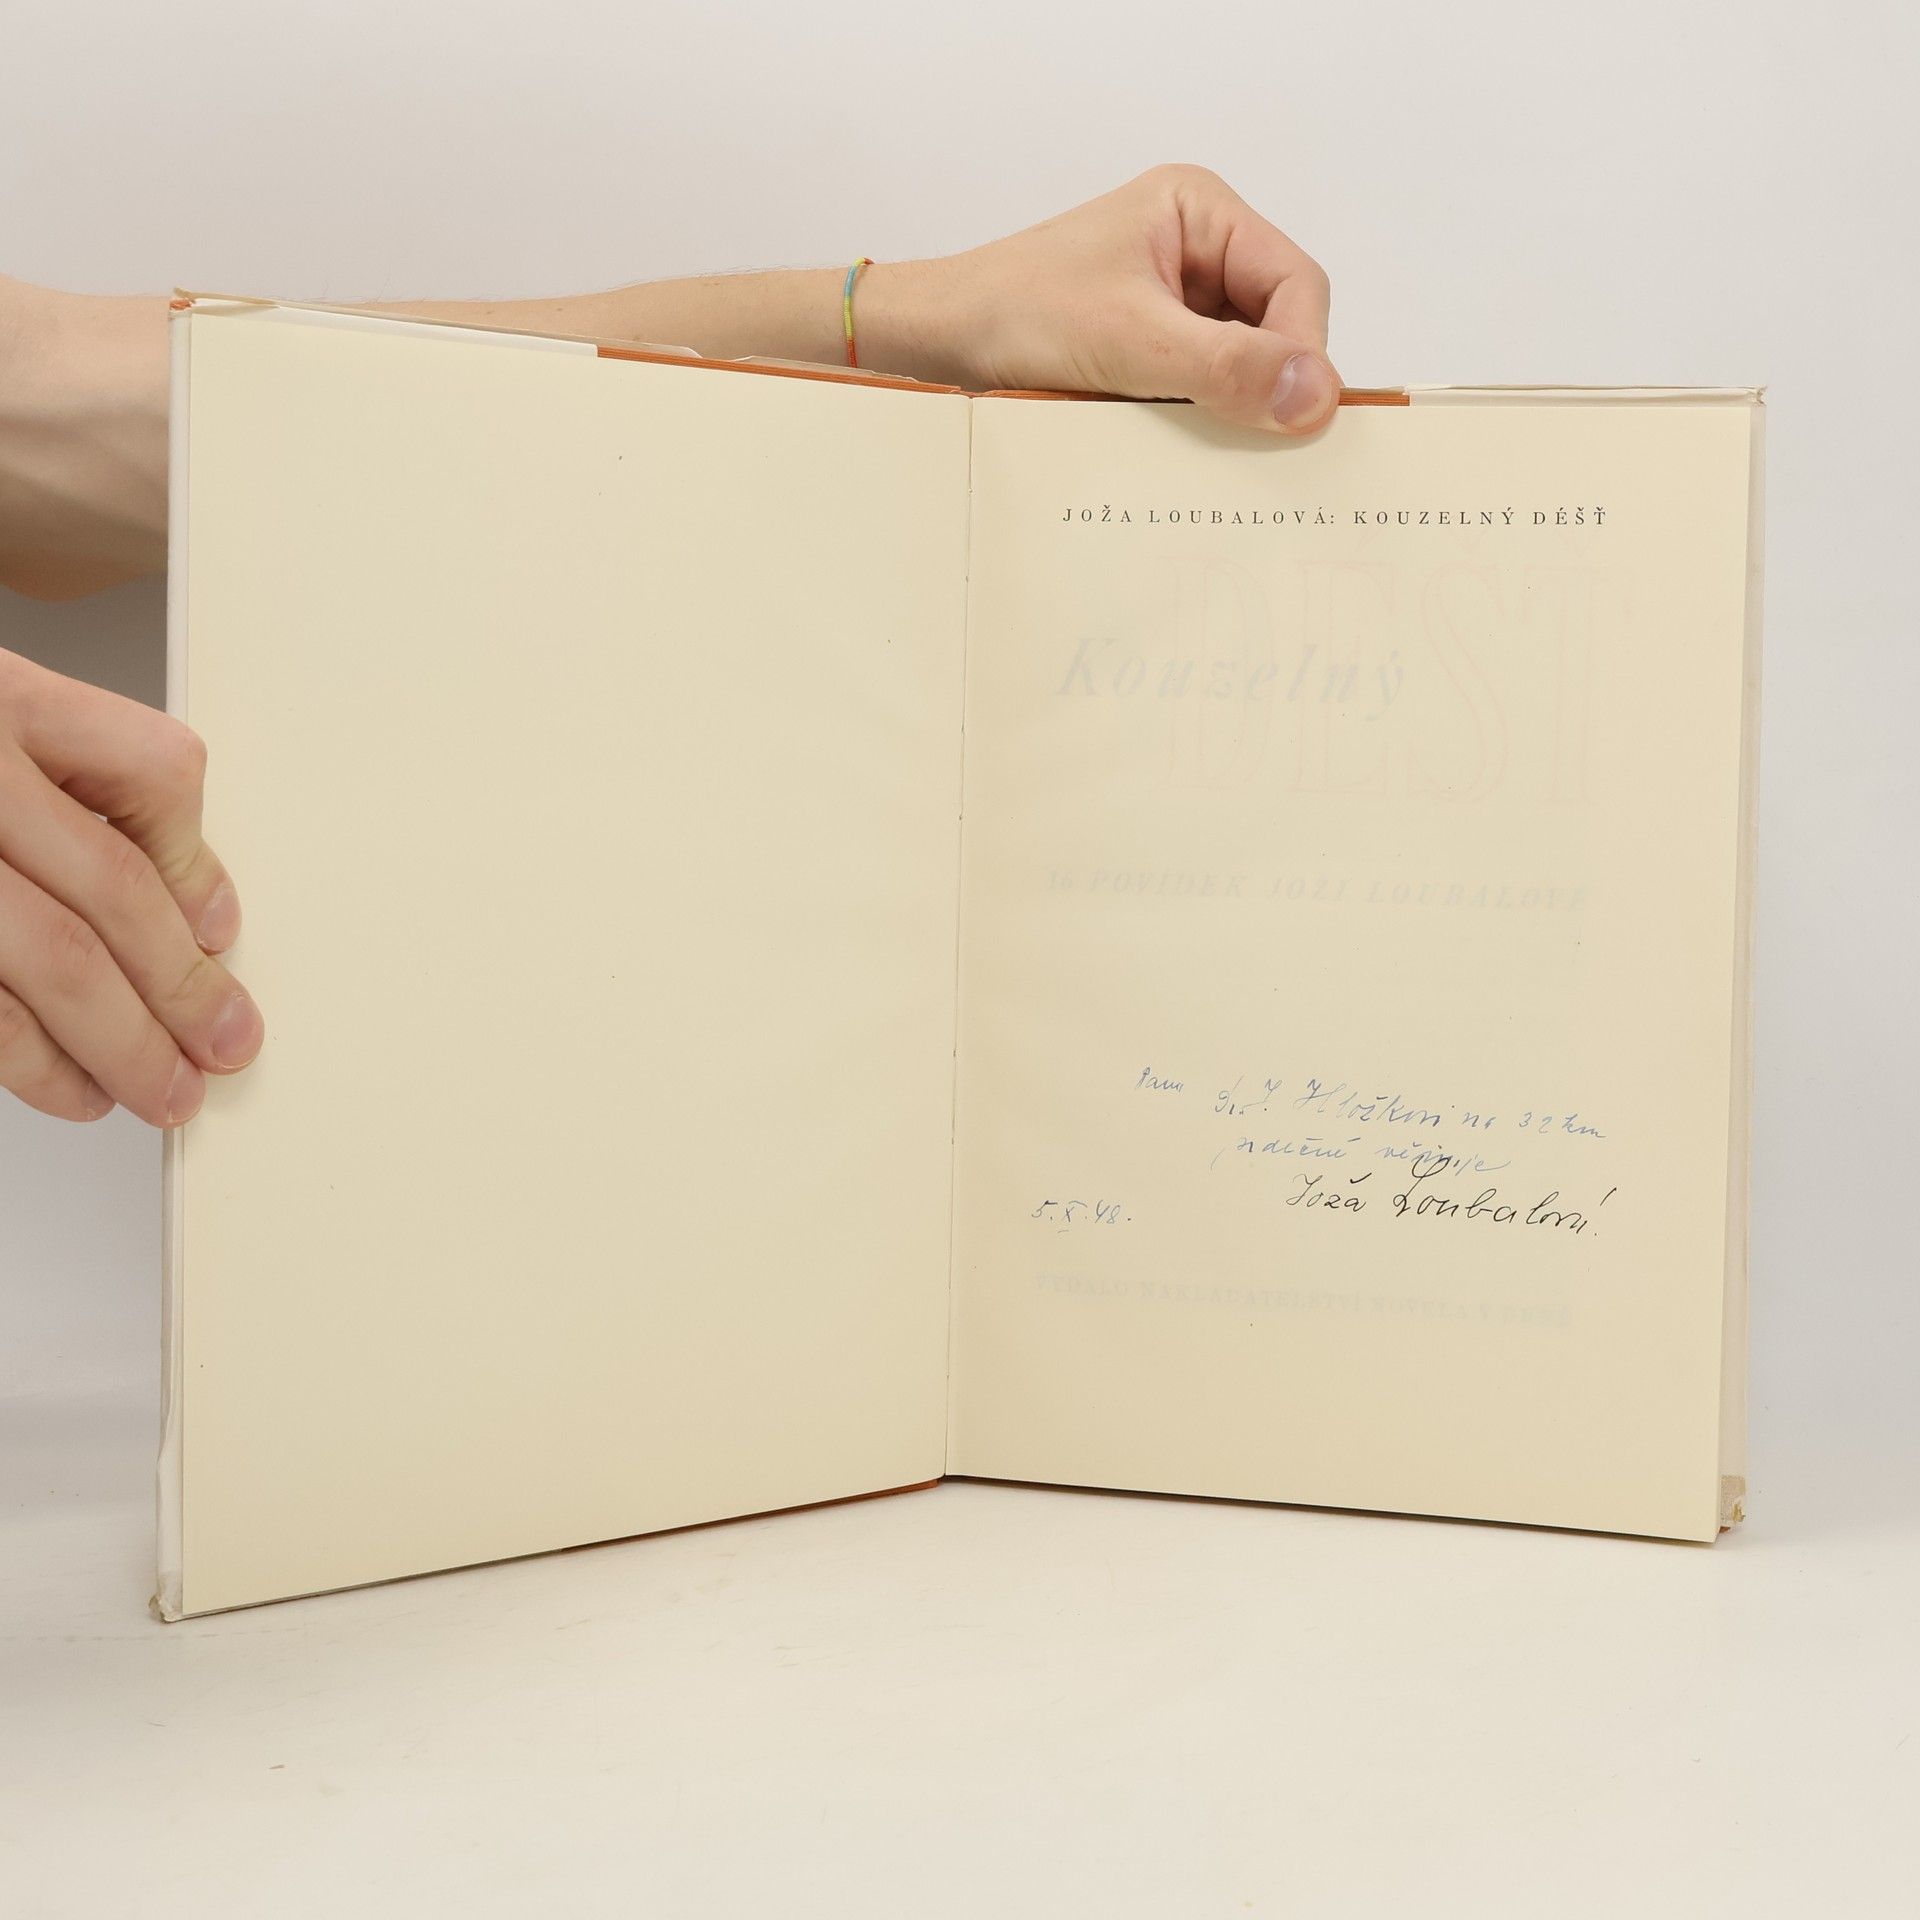 JOŽA LOUBALOVÁ: KOUZELNÝ DÉŠŤ
DÉŠŤ
Kouzelný
16 POVÍDEK JOŽI LOUBALOVÉ
Panu Dr. J. Hložkovi na 32 km
srdečně věnuje
Joža Loubalová.
5.X.48.
VYDALO NAKLADATELSTVÍ NOVELA V BRNĚ